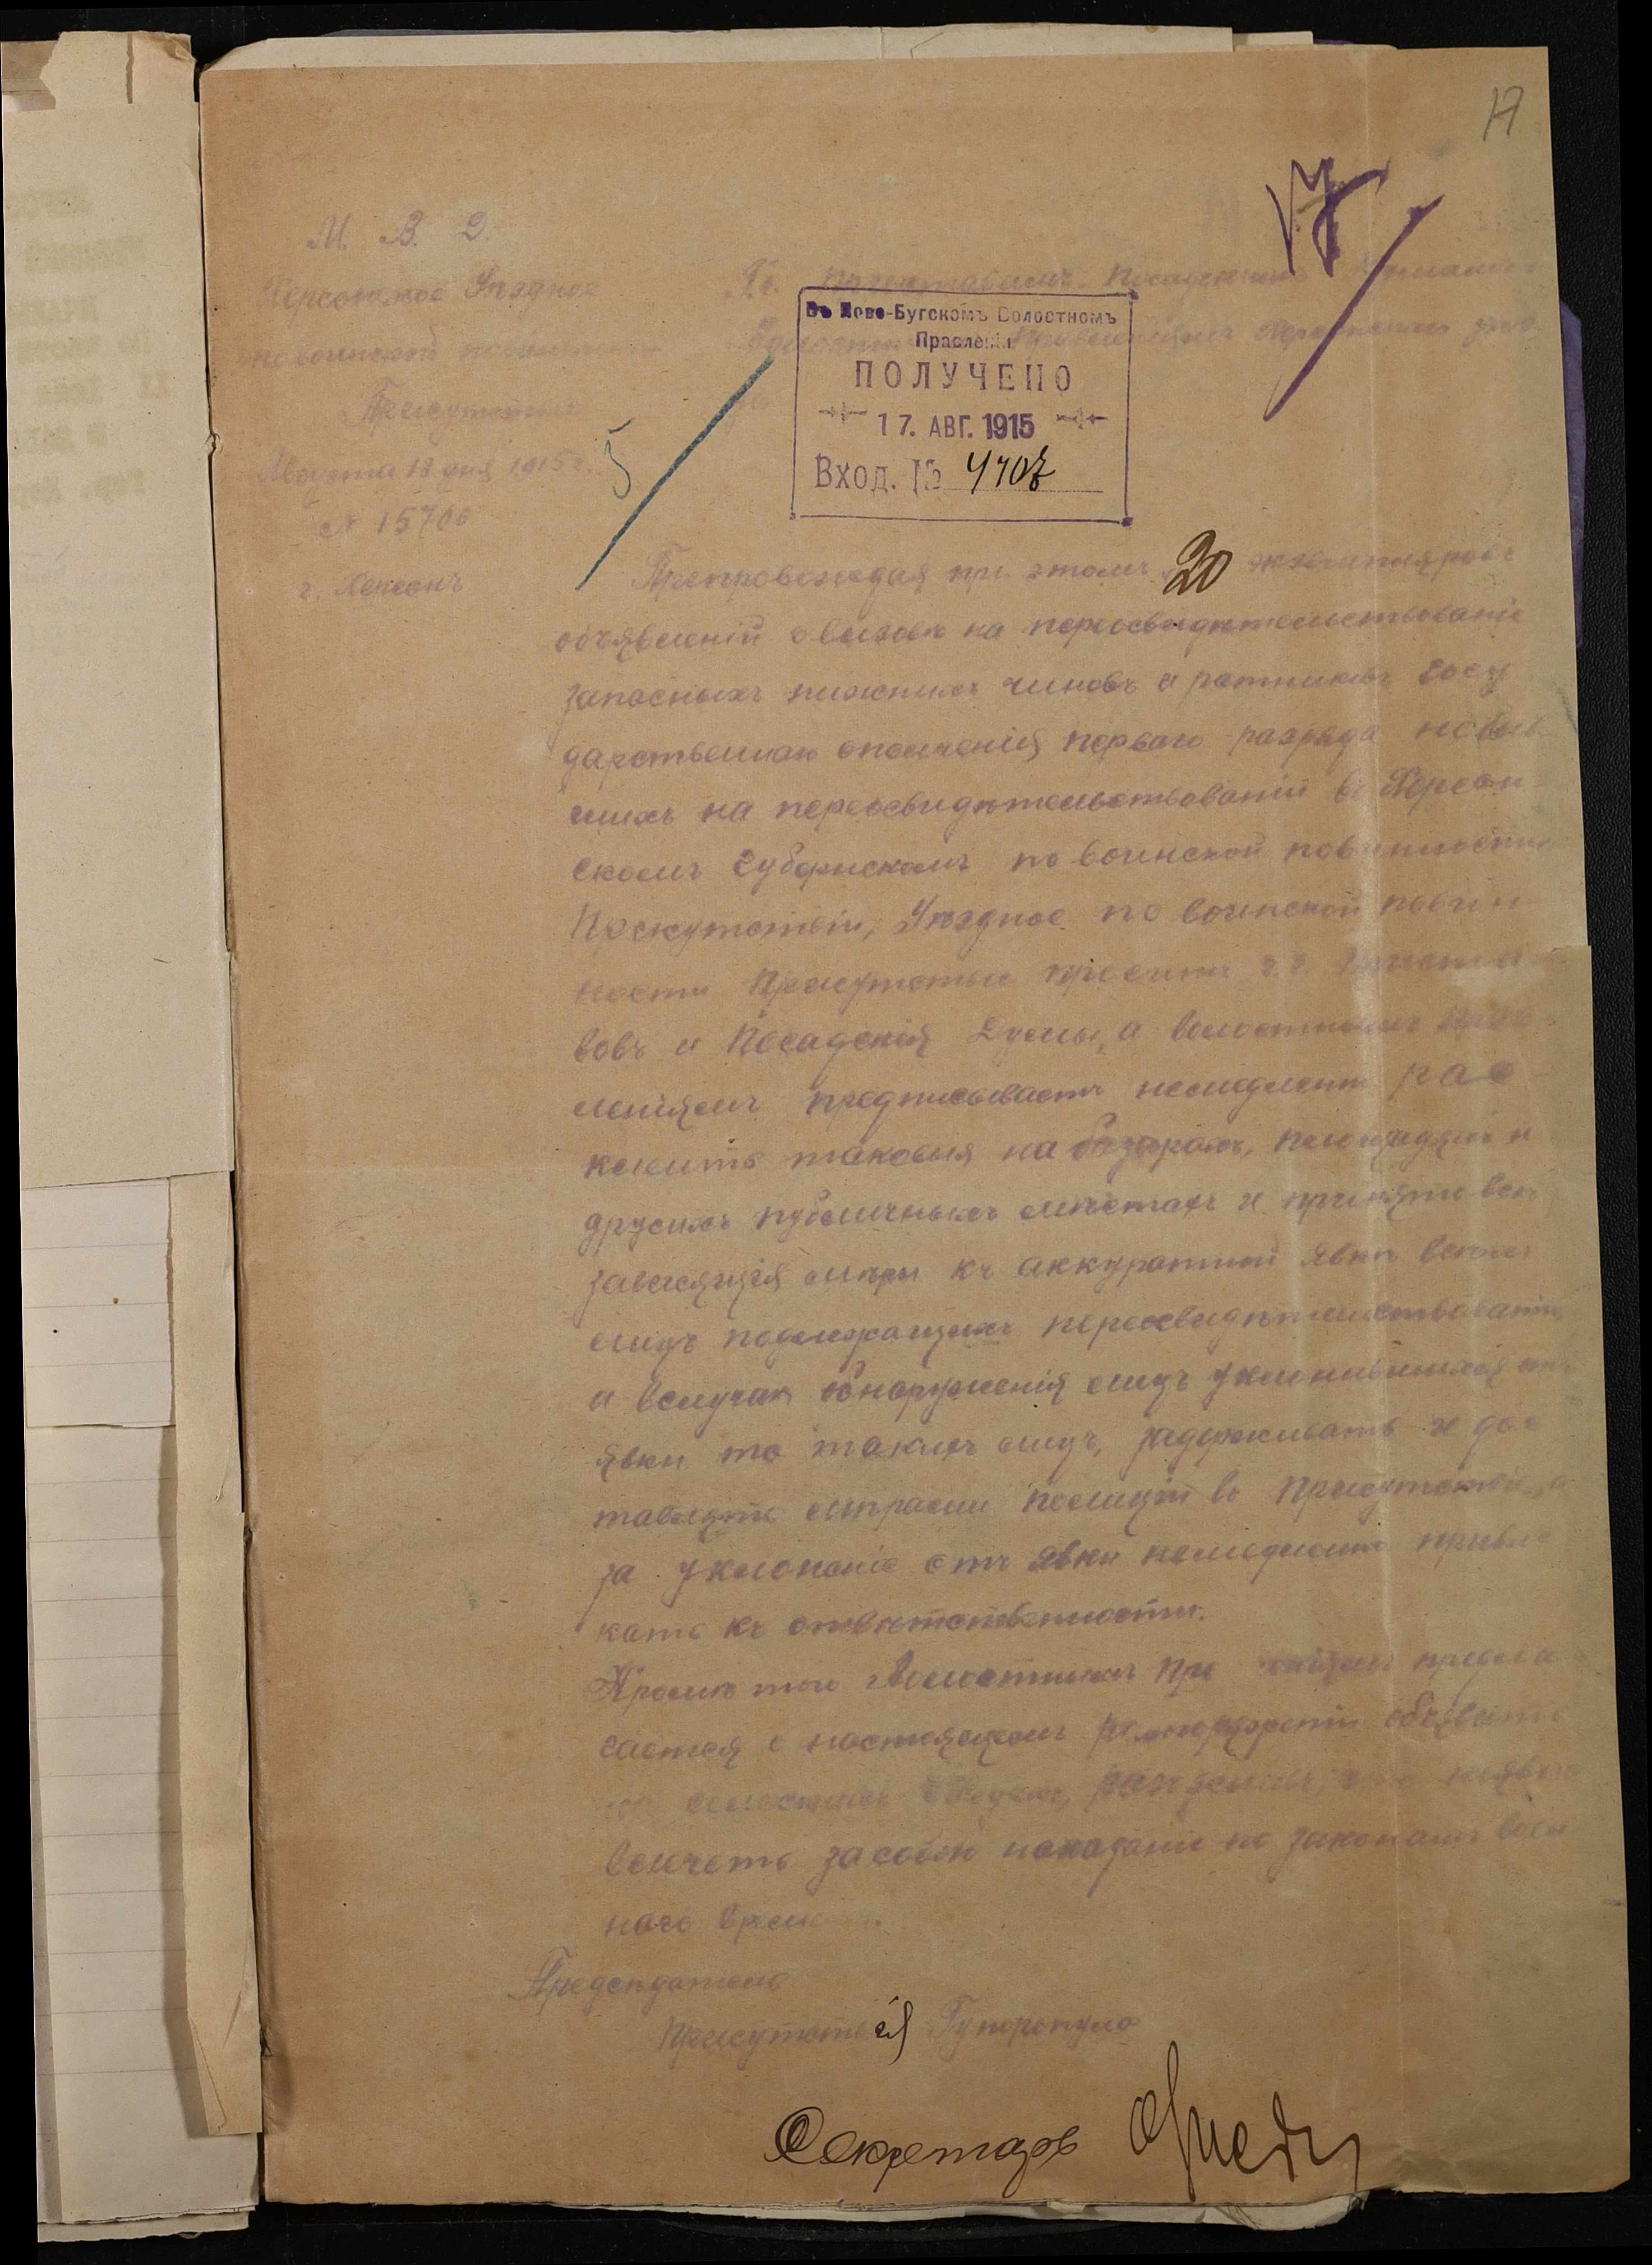 17
М. В. Д.
Херсонское Уѣздное
по воинской повинности
Присутствіе
Августа 13 дня 1915 г.
№ 15706
г. Херсонъ
Гг. Приставамъ, Посадскимъ
Волостнымъ Правленіямъ Херсонскаго
Въ Ново-Бугскомъ Волостномъ
Правленіи
ПОЛУЧЕНО
17. АВГ. 1915
Вход. № 4707
5
Препровождая при этомъ 20 экземпляровъ
объявленій о вызовѣ на переосвидѣтельствованіе
запасныхъ нижнихъ чиновъ и ратниковъ госу
дарственнаго ополченія перваго разряда небыв
шихъ на переосвидѣтельствованіи въ Херсон
скомъ Губернскомъ по воинской повинности
Присутствіи, Уѣздное по воинской повин
ности Присутствіе проситъ г.г. Приста
вовъ и Посадскія Думы, а волостнымъ прав
леніямъ предписываетъ немедленно рас
клеить таковыя на базарахъ, площадяхъ и
другихъ публичныхъ мѣстахъ и принять всѣ
зависящія мѣры къ аккуратной явкѣ всѣхъ
лицъ подлежащихъ переосвидѣтельствованію,
а вслучаѣ обнаруженія лицъ уклонившихся отъ
явки то такихъ лицъ, задерживать и дос
тавлять мѣрами полиціи въ Присутствіе, а
за уклоненіе отъ явки немедленно привле
кать къ отвѣтственности.
Кромѣ того Волостнымъ Правленіямъ предла
гается о настоящемъ распоряженіи объявить
на сельскихъ сходахъ, разъяснивъ, что неявка
влечетъ за собою наказаніе по законамъ воен
наго времени.
Предсѣдатель
Присутствія
Секретарь